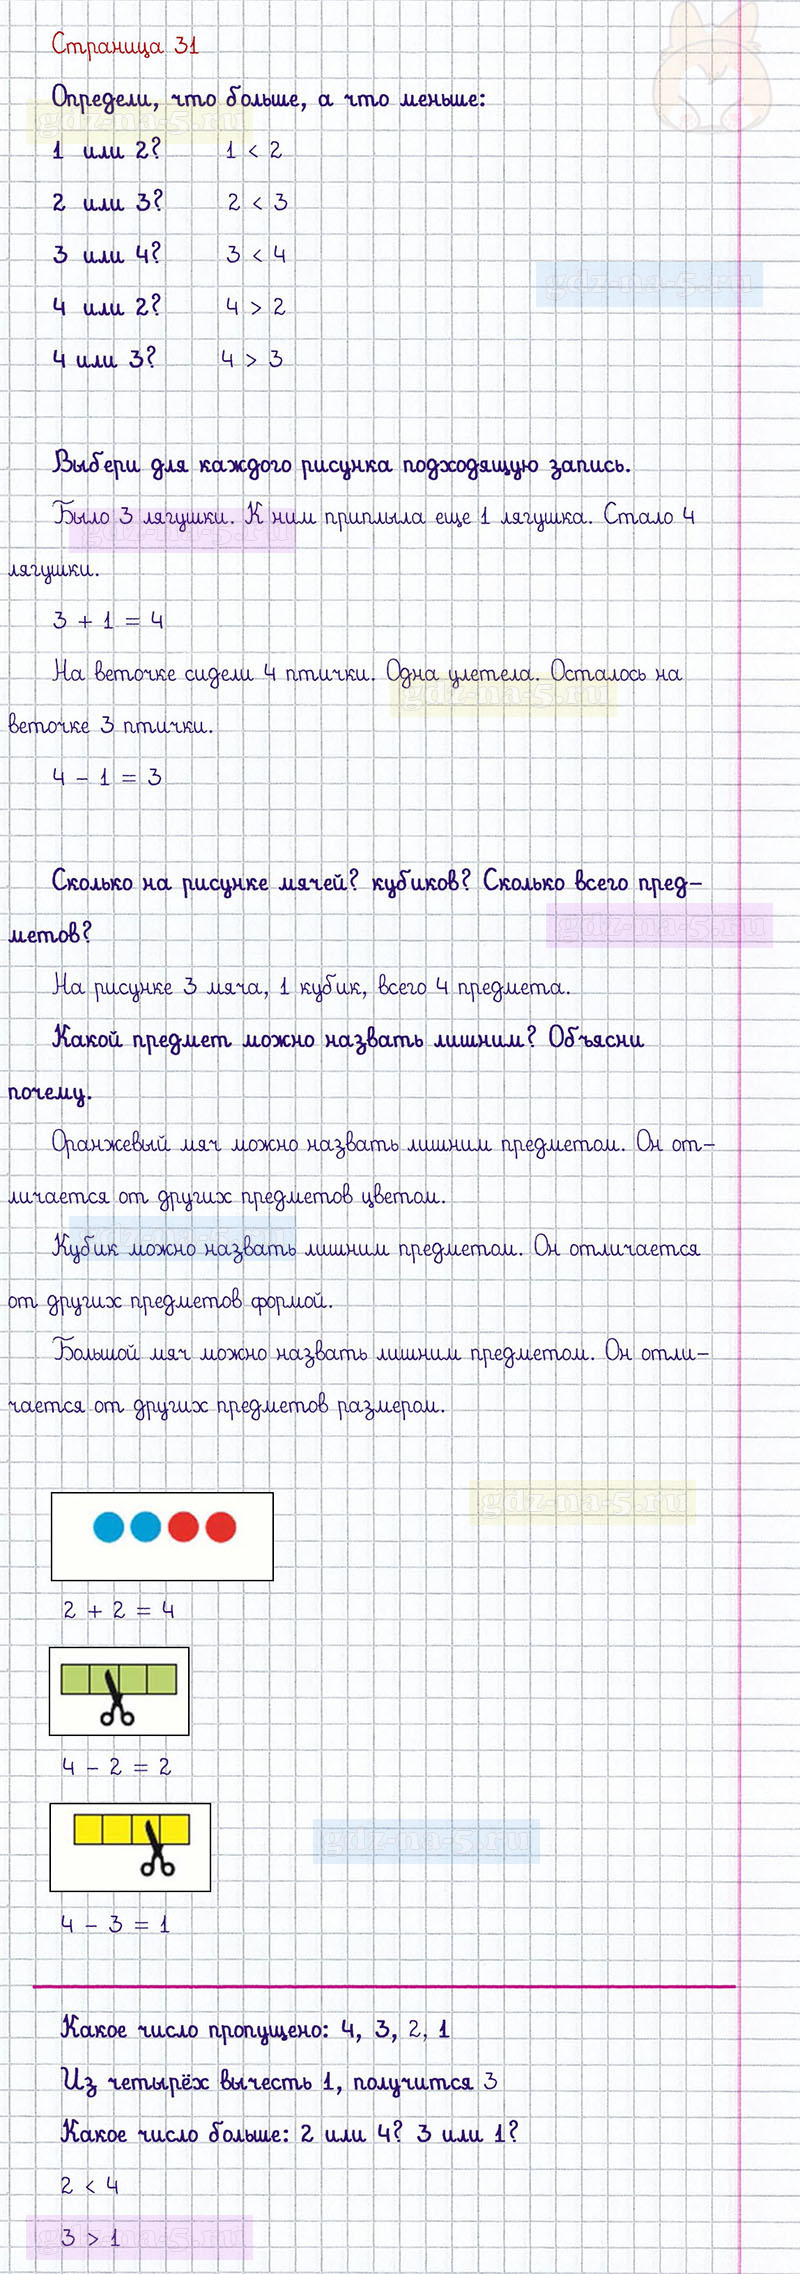 Страница 31
Определи, что больше, а что меньше:
gdz-na-5.ru
1 или 2? 1 < 2
2 или 3? 2 < 3
3 или 4? 3 < 4
gdz-na-5.ru
4 или 2? 4 > 2
4 или 3? 4 > 3
Выбери для каждого рисунка подходящую запись.
Было 3 лягушки. К ним приплыла еще 1 лягушка. Стало 4
gdz-na-5.ru
лягушки.
3 + 1 = 4
На веточке сидели 4 птички. Одна улетела. Осталось на
gdz-na-5.ru
веточке 3 птички.
4 - 1 = 3
Сколько на рисунке мячей? кубиков? Сколько всего пред-
gdz-na-5.ru
метов?
На рисунке 3 мяча, 1 кубик, всего 4 предмета.
Какой предмет можно назвать лишним? Объясни
почему.
Оранжевый мяч можно назвать лишним предметом. Он от-
личается от других предметов цветом.
gdz-na-5.ru
Кубик можно назвать лишним предметом. Он отличается
от других предметов формой.
Большой мяч можно назвать лишним предметом. Он отли-
чается от других предметов размером.
gdz-na-5.ru
2 + 2 = 4
4 - 2 = 2
gdz-na-5.ru
4 - 3 = 1
Какое число пропущено: 4, 3, 2, 1
Из четырёх вычесть 1, получится 3
Какое число больше: 2 или 4? 3 или 1?
2 < 4
gdz-na-5.ru
3 > 1